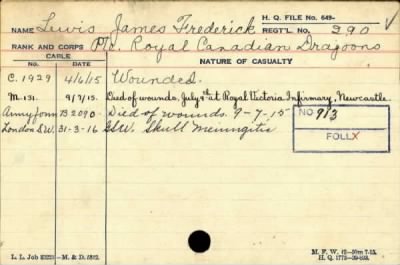 H. Q. FILE No. 649-
NAME Lewis James Frederick REGT'L. No. 290
RANK AND CORPS Pte. Royal Canadian Dragoons
CABLE
No. DATE NATURE OF CASUALTY
C. 1929 4/6/15 Wounded.
M-131. 9/7/15. Died of wounds, July 9th at Royal Victoria Infirmary, Newcastle.
Army form B2090 Died of wounds. 9-7-15
London S.W. 31-3-16 GSW. Skull Meningitis
NO 913
FOLL X
L. L. Job 82223—M. & D. 5812.
M. F. W. 42—50m 7-15.
H. Q. 1772-39-893.